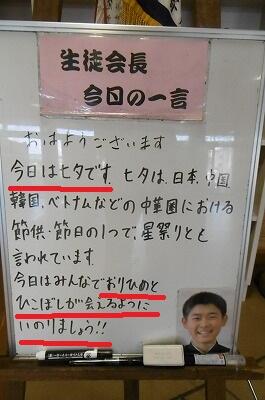 生徒会長
今日の一言
おはようございます
今日は七夕です。七夕は、日本、中国
韓国、ベトナムなどの中華圏における
節供・節日の1つで、星祭りとも
言われています。
今日はみんなでおりひめと
ひこぼしが会えるように
いのりましょう!!